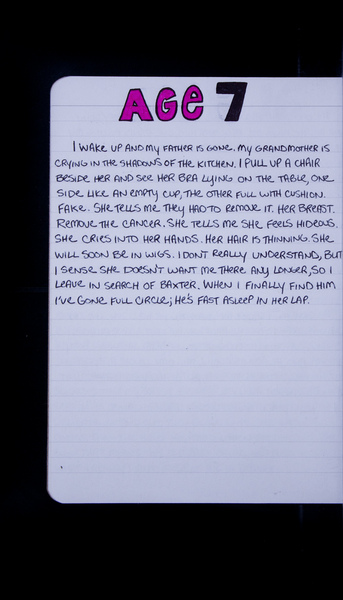 AGe 7
I WAKE UP AND MY FATHER IS GONE. MY GRANDMOTHER IS
CRYING IN THE SHADOWS OF THE KITCHEN. I PULL UP A CHAIR
BESIDE HER AND SEE HER BRA LYING ON THE TABLE, ONE
SIDE LIKE AN EMPTY CUP, THE OTHER FULL WITH CUSHION.
FAKE. SHE TELLS ME THEY HAD TO REMOVE IT. HER BREAST.
REMOVE THE CANCER. SHE TELLS ME SHE FEELS HIDEOUS.
SHE CRIES INTO HER HANDS. HER HAIR IS THINNING. SHE
WILL SOON BE IN WIGS. I DONT REALLY UNDERSTAND, BUT
I SENSE SHE DOESN'T WANT ME THERE ANY LONGER, SO I
LEAVE IN SEARCH OF BAXTER. WHEN I FINALLY FIND HIM
I'VE GONE FULL CIRCLE; HE'S FAST ASLEEP IN HER LAP.